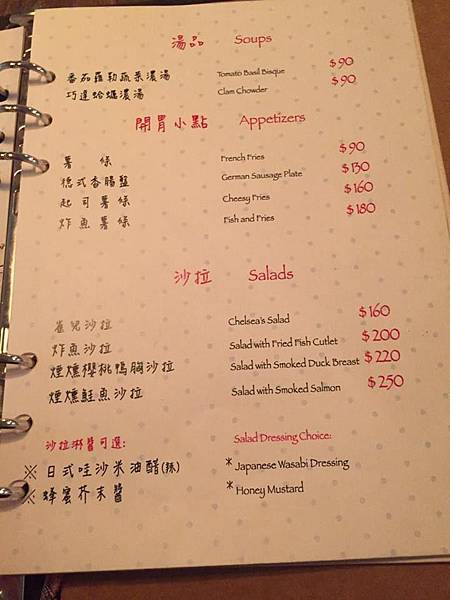 湯品 Soups
番茄羅勒蔬菜濃湯 Tomato Basil Bisque $90
巧達蛤蠣濃湯 Clam Chowder $90
開胃小點 Appetizers
薯條 French Fries $90
德式香腸盤 German Sausage Plate $130
起司薯條 Cheesy Fries $160
炸魚薯條 Fish and Fries $180
沙拉 Salads
雀兒沙拉 Chelsea's Salad $160
炸魚沙拉 Salad with Fried Fish Cutlet $200
煙燻櫻桃鴨胸沙拉 Salad with Smoked Duck Breast $220
煙燻鮭魚沙拉 Salad with Smoked Salmon $250
沙拉淋醬可選: Salad Dressing Choice:
※ 日式哇沙米油醋(辣) * Japanese Wasabi Dressing
※ 蜂蜜芥末醬 * Honey Mustard